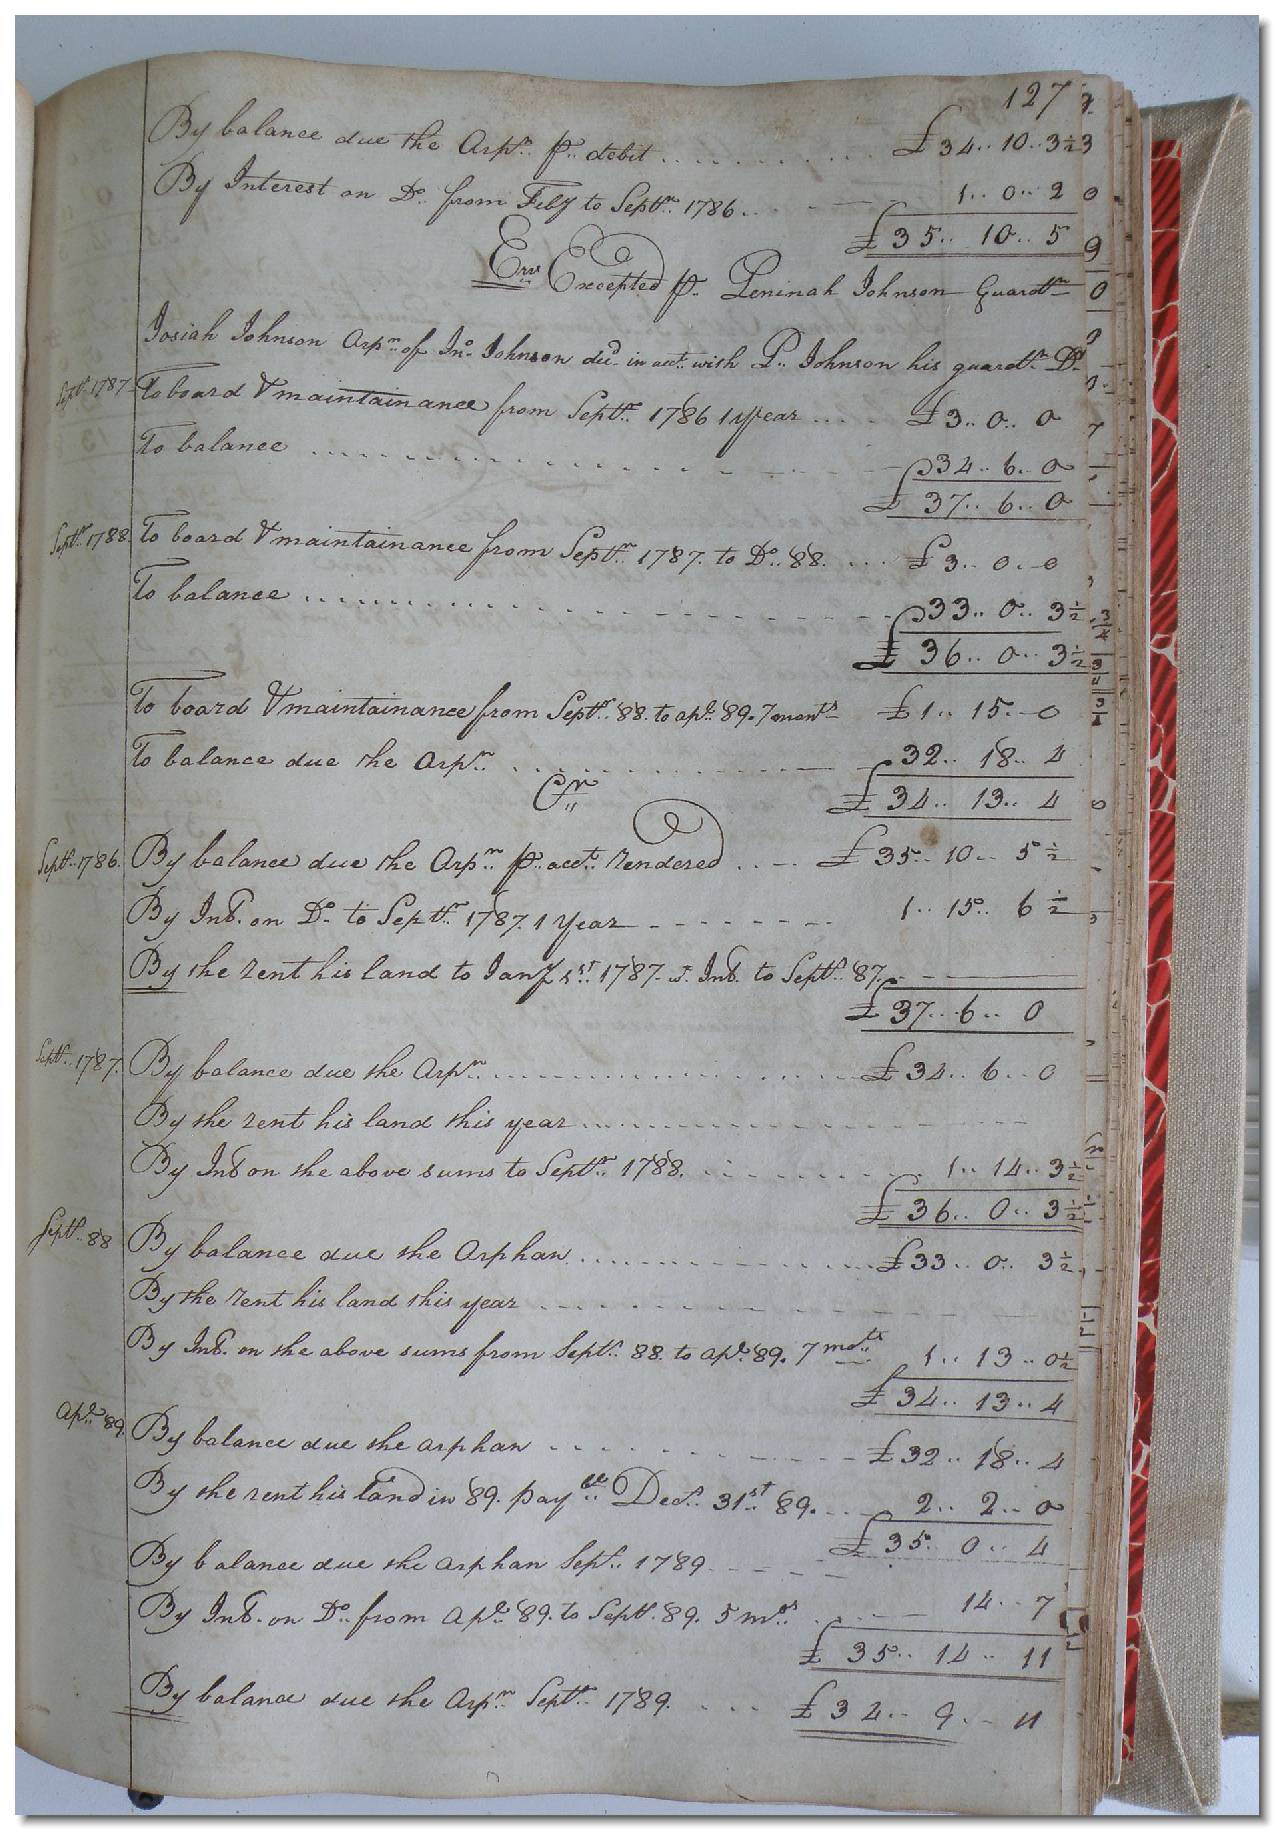 127
By balance due the Orpn. pr. debit £34..10..3½
By Interest on Do. from Feby to Septr. 1786 1..0..2
£35..10..5
Errs Excepted pr. Peninah Johnson Guardn
Josiah Johnson Orpn. of Jno. Johnson decd. in acct. with P. Johnson his guardn. Dr
Septr. 1787 To board & maintainance from Septr. 1786 1 year £3..0..0
To balance 34..6..0
£37..6..0
Septr. 1788. To board & maintainance from Septr. 1787. to Do. 88. £3..0..0
To balance 33..0..3½
£36..0..3½
To board & maintainance from Septr. 88. to apl. 89. 7 monts £1..15..0
To balance due the Orpn. 32..18..4
Cr £34..13..4
Septr. 1786. By balance due the Orpn. pr. acct. rendered £35..10..5½
By Int. on Do. to Septr. 1787. 1 year 1..15..6½
By the rent his land to Jany 1st. 1787. & Int. to Septr. 87.
£37..6..0
Septr. 1787. By balance due the Orpn. £34..6..0
By the rent his land this year
By Int on the above sums to Septr. 1788. 1..14..3½
£36..0..3½
Septr. 88 By balance due the Orphan £33..0..3½
By the rent his land this year
By Int. on the above sums from Septr. 88. to apl. 89. 7 mots 1..13..0½
£34..13..4
Apl. 89. By balance due the orphan £32..18..4
By the rent his land in 89. payble. Decr. 31st 89. 2..2..0
£35..0..4
By balance due the orphan Sept. 1789
By Int. on Do. from apl. 89. to Septr. 89. 5 mos 14..7
£35..14..11
By balance due the Orpn Septr. 1789. £34..9..11